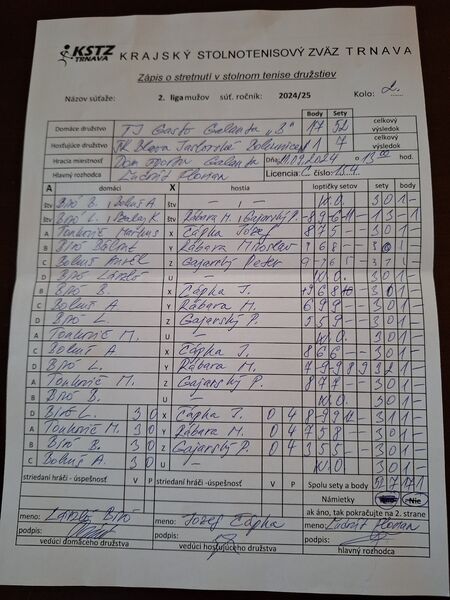 KSTZ
TRNAVA
KRAJSKÝ STOLNOTENISOVÝ ZVÄZ TRNAVA
Zápis o stretnutí v stolnom tenise družstiev
Názov súťaže: 2. liga mužov súť. ročník: 2024/25 Kolo: 2.
Body Sety
Domáce družstvo TJ Gasto Galanta "B" 17 52 celkový výsledok
Hosťujúce družstvo Slava Jaslovské Bohunice 1 7 celkový výsledok
Hracia miestnosť Dom športu Galanta Dňa 2024 o 13 00 hod.
Hlavný rozhodca Ľudvit Florian Licencia: C číslo: 154.
A domáci X hostia loptičky setov sety body
štv Bíró B., Bohuš A - , - W.O. 3 0 1 -
štv Bíró L., Rábara M., Gajarský P. 1 3 - 1
A Tonkovič Markus X Čápka Jozef 8 7 5 - - 3 0 1 -
B Bíró Bálint Y Rábara Miroslav 3 0 1 -
C Bohuš Z Gajarský Peter 3 1 1 -
D Bíró László U - W.O. 3 0 1 -
B Bíró B. X Čápka J. 3 0 1 -
C Bohuš A Y Rábara M. 6 9 9 - - 3 0 1 -
D Bíró L. Z Gajarský P. 3 0 1 -
A Tonkovič M. U - W.O. 3 0 1 -
C Bohuš A X Čápka J. 8 6 6 - - 3 0 1 -
D Bíró L. Y Rábara M. 7 -9 -8 9 3 2 1 -
A Tonkovič M. Z Gajarský P. 8 7 7 - - 3 0 1 -
B Bíró B. U - W.O. 3 0 1 -
D Bíró L. 3 0 X Čápka J. 0 4 3 1 1 -
A Tonkovič M. 3 0 Y Rábara M. 0 4 3 0 1 -
B Bíró B. 3 0 Z Gajarský P. 0 4 3 5 5 - - 3 0 1 -
C Bohuš A. 3 0 U - W.O. 3 0 1 -
striedaní hráči - úspešnosť V P striedaní hráči - úspešnosť V P Spolu sety a body 52 7 17 1
Námietky Nie
ak áno, tak pokračujte na 2. strane
meno: László Bíró meno: Jozef Čápka meno: Ľudvit Florian
podpis: podpis: podpis:
vedúci domáceho družstva vedúci hosťujúceho družstva hlavný rozhodca